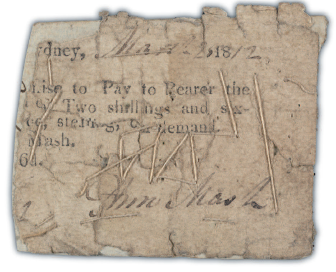 dney, 1812
ise to Pay to Bearer the
Two shillings and six-
ce, sterling, demand.
Mash.
6d.
John Mash